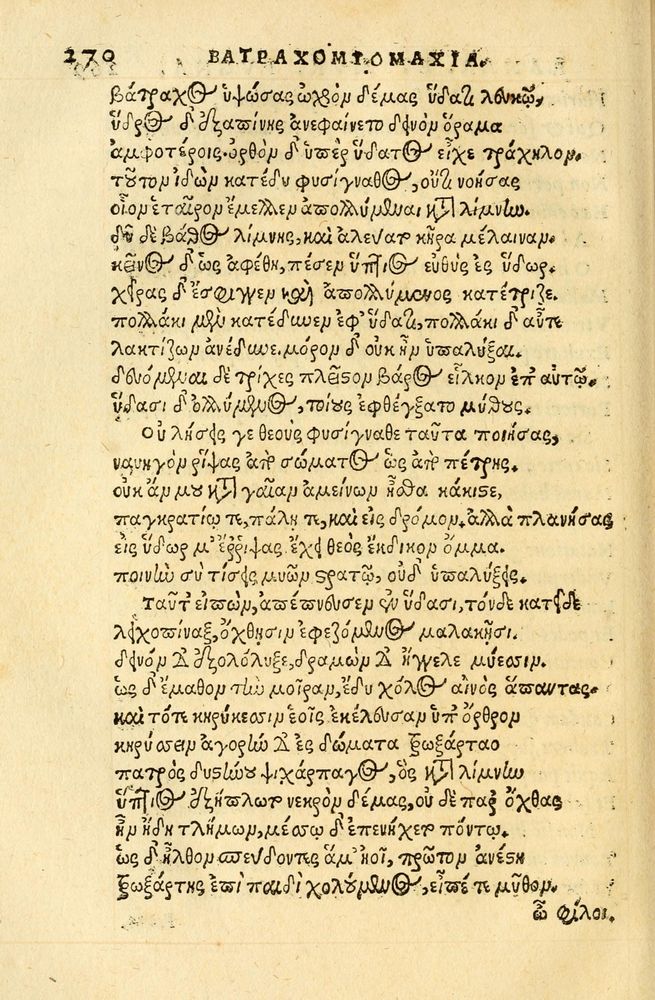 270 ΒΑΤΡΑΧΟΜΥΟΜΑΧΙΑ.
βάτραχος ὑψώσας ὠχρὸν δέμας ὕδατι λευκῷ,
ὕδρος δ' ἐξαπίνης ἀνεφαίνετο δεινὸν ὅραμα
ἀμφοτέροις. ὀρθὸν δ' ὑπὲρ ὕδατος εἶχε τράχηλον.
τοῦτον ἰδὼν κατέδυ φυσίγναθος, οὔτι νοήσας
οἷον ἑταῖρον ἔμελλεν ἀπολλύμεναι κατὰ λίμνην.
δῦ δὲ βάθος λίμνης, καὶ ἀλεύατο κῆρα μέλαιναν.
κεῖνος δ' ὡς ἀφέθη, πέσεν ὕπτιος εὐθὺς ἐς ὕδωρ.
χεῖρας δ' ἔσφιγγεν καὶ ἀπολλύμενος κατέτριζε.
πολλάκι μὲν κατέδυνεν ἐφ' ὕδατι, πολλάκι δ' αὖτε
λακτίζων ἀνέδυνε. μόρον δ' οὐκ ἦν ὑπαλύξαι.
δευόμεναι δὲ τρίχες πλεῖστον βάρος εἷλκον ἐπ' αὐτῷ.
ὕδασι δ' ὀλλύμενος, τοίους ἐφθέγξατο μύθους.
Οὐ λήσεις γε θεοὺς φυσίγναθε ταῦτα ποιήσας,
ναυηγὸν ῥίψας ἀπὸ σώματος ὡς ἀπὸ πέτρης.
οὐκ ἄν μου κατὰ γαῖαν ἀμείνων ἦσθα κάκιστε,
παγκρατίῳ τε, πάλῃ τε, καὶ εἰς δρόμον. ἀλλὰ πλανήσας
εἰς ὕδωρ μ' ἔρριψας ἔχει θεὸς ἔκδικον ὄμμα.
ποινὴν σὺ τίσεις μυῶν στρατῷ, οὐδ' ὑπαλύξεις.
Ταῦτ' εἰπὼν, ἀπέπνευσεν ἐν ὕδασι, τόνδε κατεῖδε
λειχοπίναξ, ὄχθῃσιν ἐφεζόμενος μαλακῇσι.
δεινὸν δ' ἐξολόλυξε, δραμὼν δ' ἤγγελε μύεσσιν.
ὡς δ' ἔμαθον τὴν μοῖραν, ἔδυ χόλος αἰνὸς ἅπαντας.
καὶ τότε κηρύκεσσιν ἑοῖς ἐκέλευσαν ὑπ' ὄρθρον
κηρύσσειν ἀγορὴν δ' ἐς δώματα τρωξάρταο
πατρὸς δυστήνου ψιχάρπαγος, ὃς κατὰ λίμνην
ὕπτιος ἐξήπλωτο νεκρὸν δέμας, οὐδὲ παρ' ὄχθας
ἦν ἤδη τλήμων, μέσσῳ δ' ἐπενήχετο πόντῳ.
ὡς δ' ἦλθον σπεύδοντες ἅμ' ἠοῖ, πρῶτον ἀνέστη
τρωξάρτης ἐπὶ παιδὶ χολούμενος, εἶπέ τε μῦθον.
ὦ φίλοι.